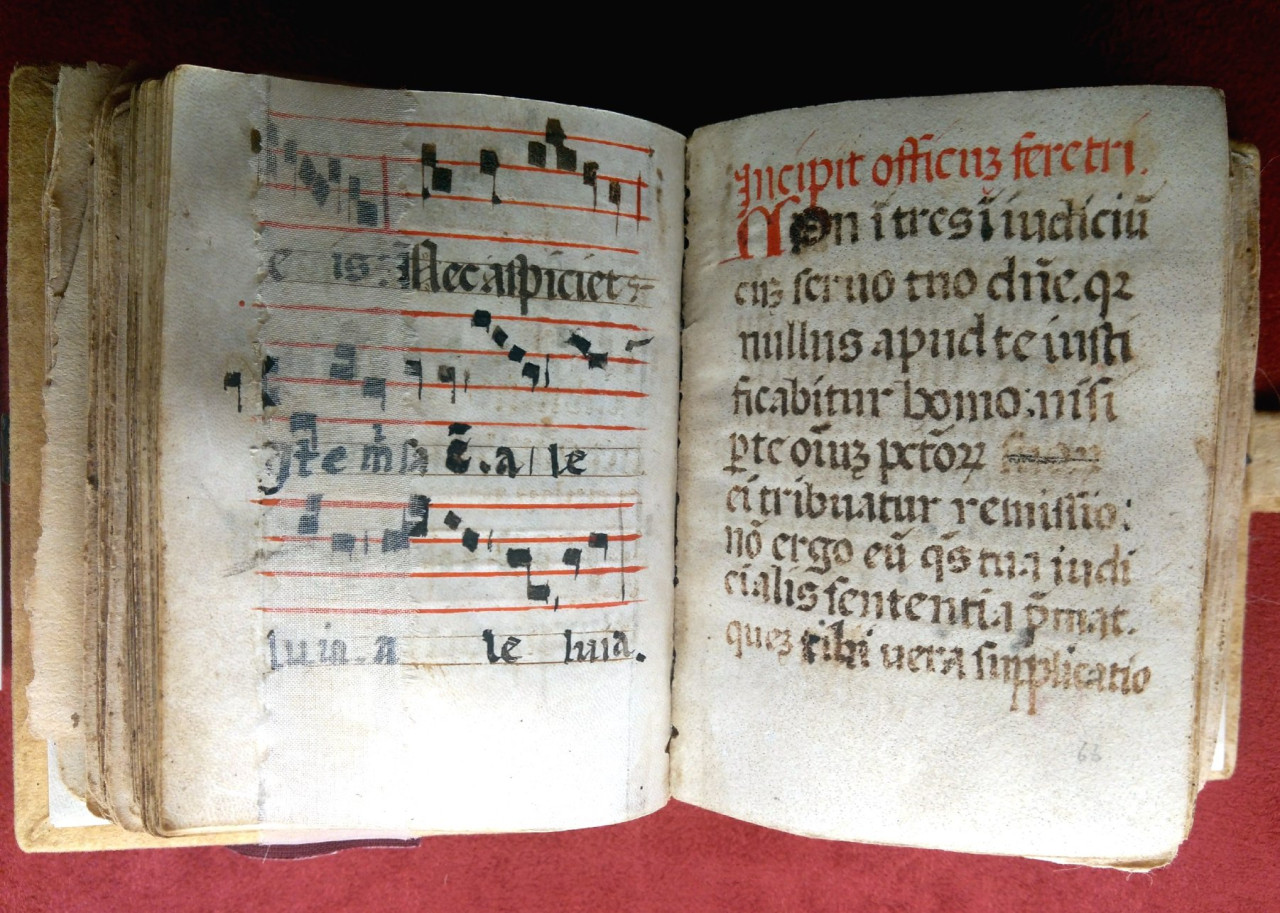 e is. Nec aspiciet
Ite missa ē. ale
luia. a le luia.
Incipit officiuꝫ feretri.
Non ītres ī iudiciū
cuꝫ seruo tuo dn̄e. qꝛ
nullus apud te iusti
ficabitur homo: nisi
ꝑ te oīuꝫ pctōꝝ
ei tribuatur remissio:
nō ergo eū q̄s tua iudi
cialis sententia p̄mat.
queꝫ tibi uera supplicatio
63